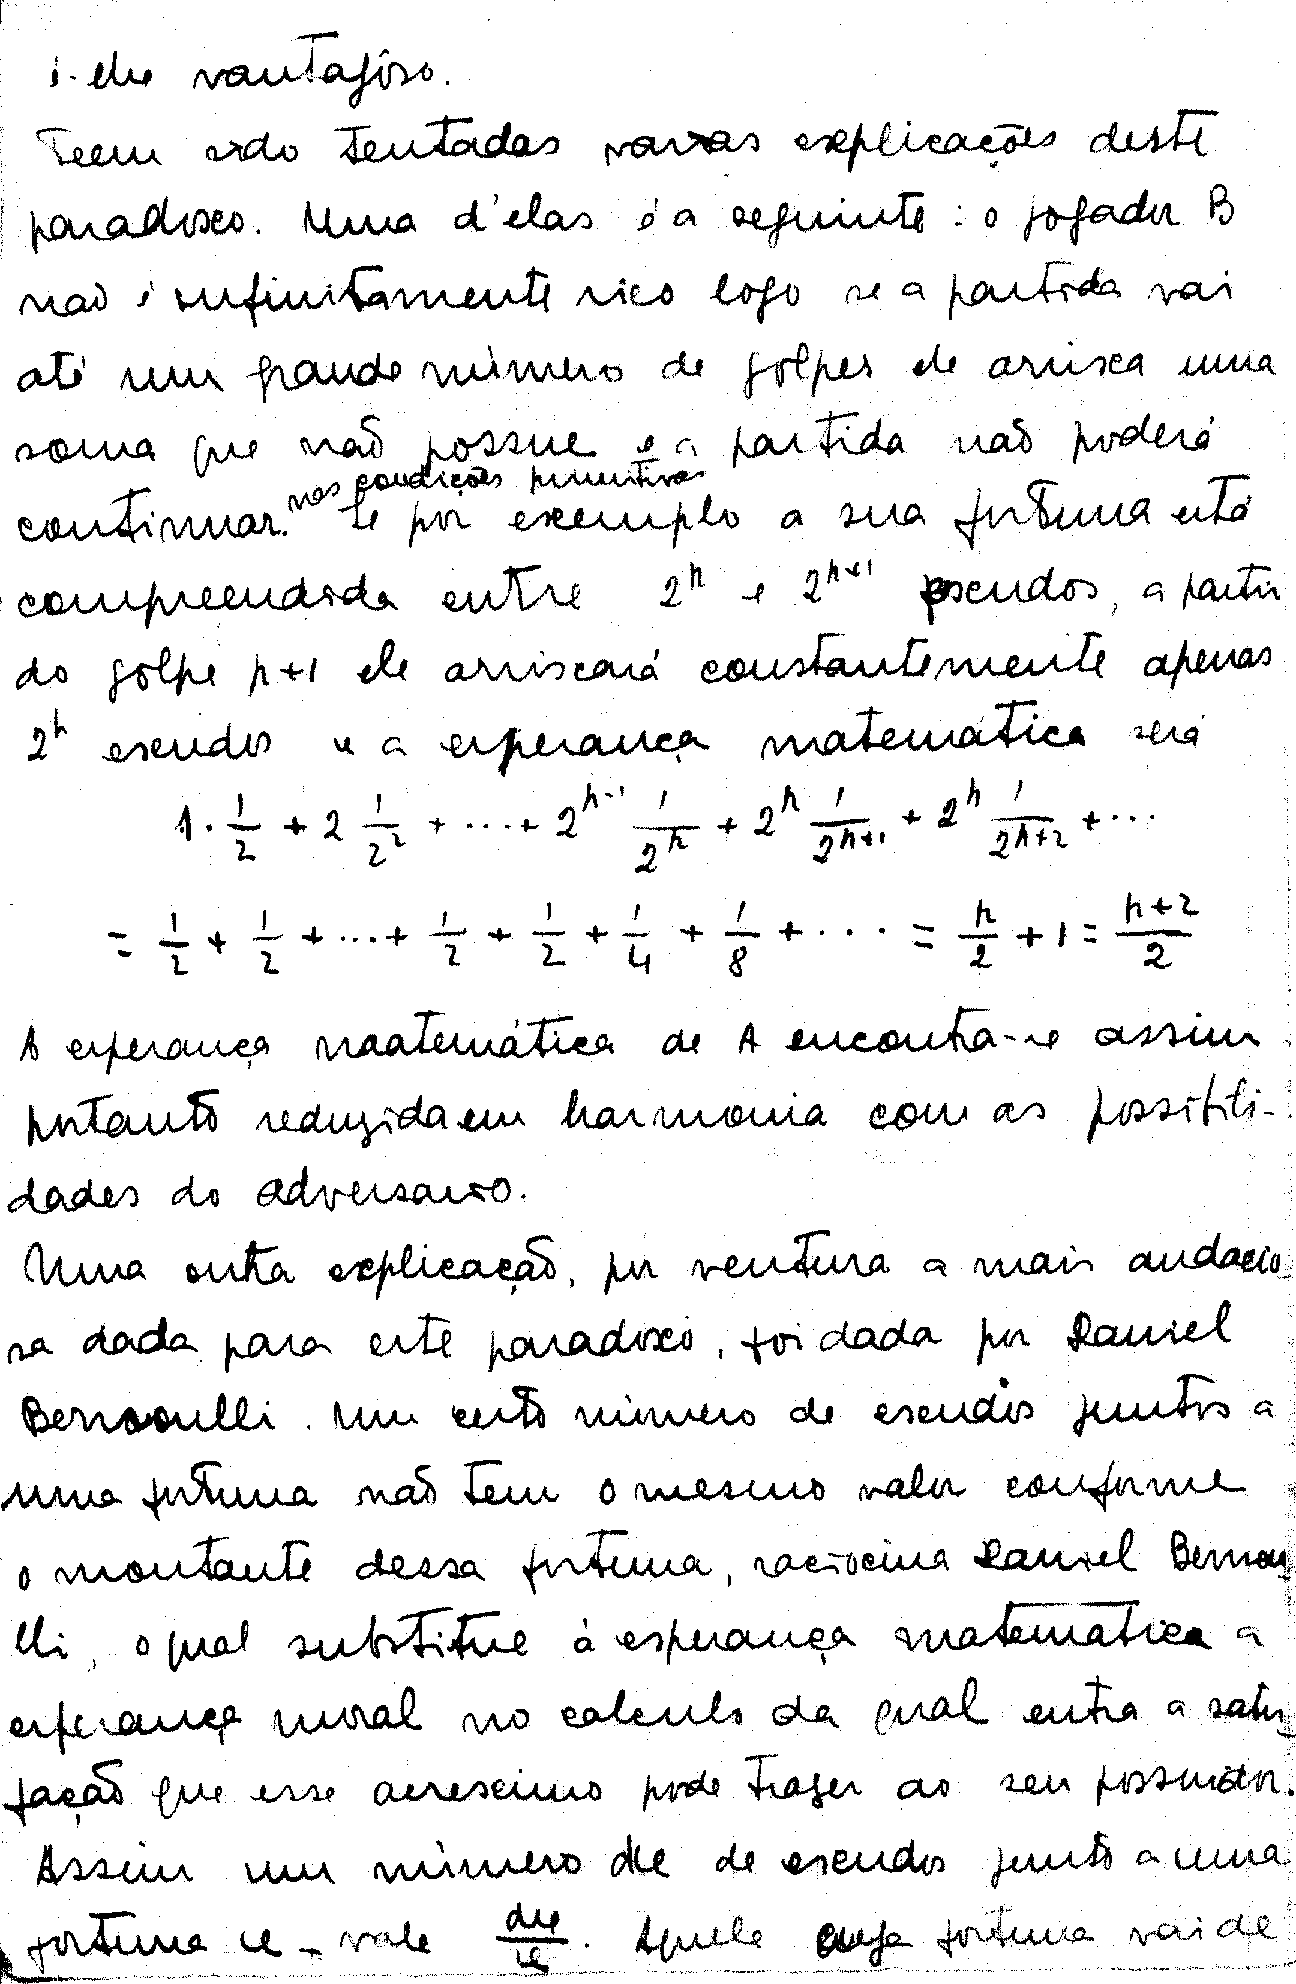 é-lhe vantajôso.
Teem sido tentadas varias explicações deste
paradoxo. Uma d'elas é a seguinte: o jogador B
não é infinitamente rico logo se a partida vai
até um grande número de golpes ele arrisca uma
soma que não possue e a partida não poderá
continuar nas condições primitivas. Se por exemplo a sua fortuna está
compreendida entre 2^n e 2^{n+1} escudos, a partir
do golpe n+1 ele arriscará constantemente apenas
2^n escudos e a esperança matemática será
1 · 1/2 + 2 1/2^2 + ... + 2^{n-1} 1/2^n + 2^n 1/2^{n+1} + 2^n 1/2^{n+2} + ...
= 1/2 + 1/2 + ... + 1/2 + 1/2 + 1/4 + 1/8 + ... = n/2 + 1 = n+2/2
A esperança matemática de A encontra-se assim
portanto reduzida em harmonia com as possibili-
dades do adversario.
Uma outra explicação, por ventura a mais audacio-
sa dada para este paradoxo, foi dada por Daniel
Bernoulli. Um certo número de escudos juntos a
uma fortuna não tem o mesmo valor conforme
o montante dessa fortuna, raciocina Daniel Bernou-
lli, o qual substitue á esperança matematica a
esperança moral no calculo da qual entra a satis-
fação que esse acrescimo pode trazer ao seu possuidor.
Assim um número de escudos junto a uma
fortuna vale. Aquele cuja fortuna vai de